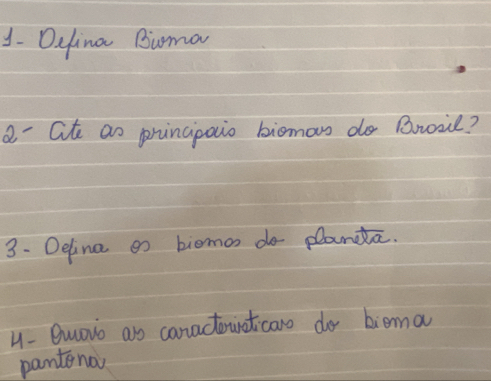 1- Defina Bioma
2- Cite as principais biomas do Brasil?
3- Defina os biomas do planeta.
4- Quais as caracteristicas do bioma
pantona